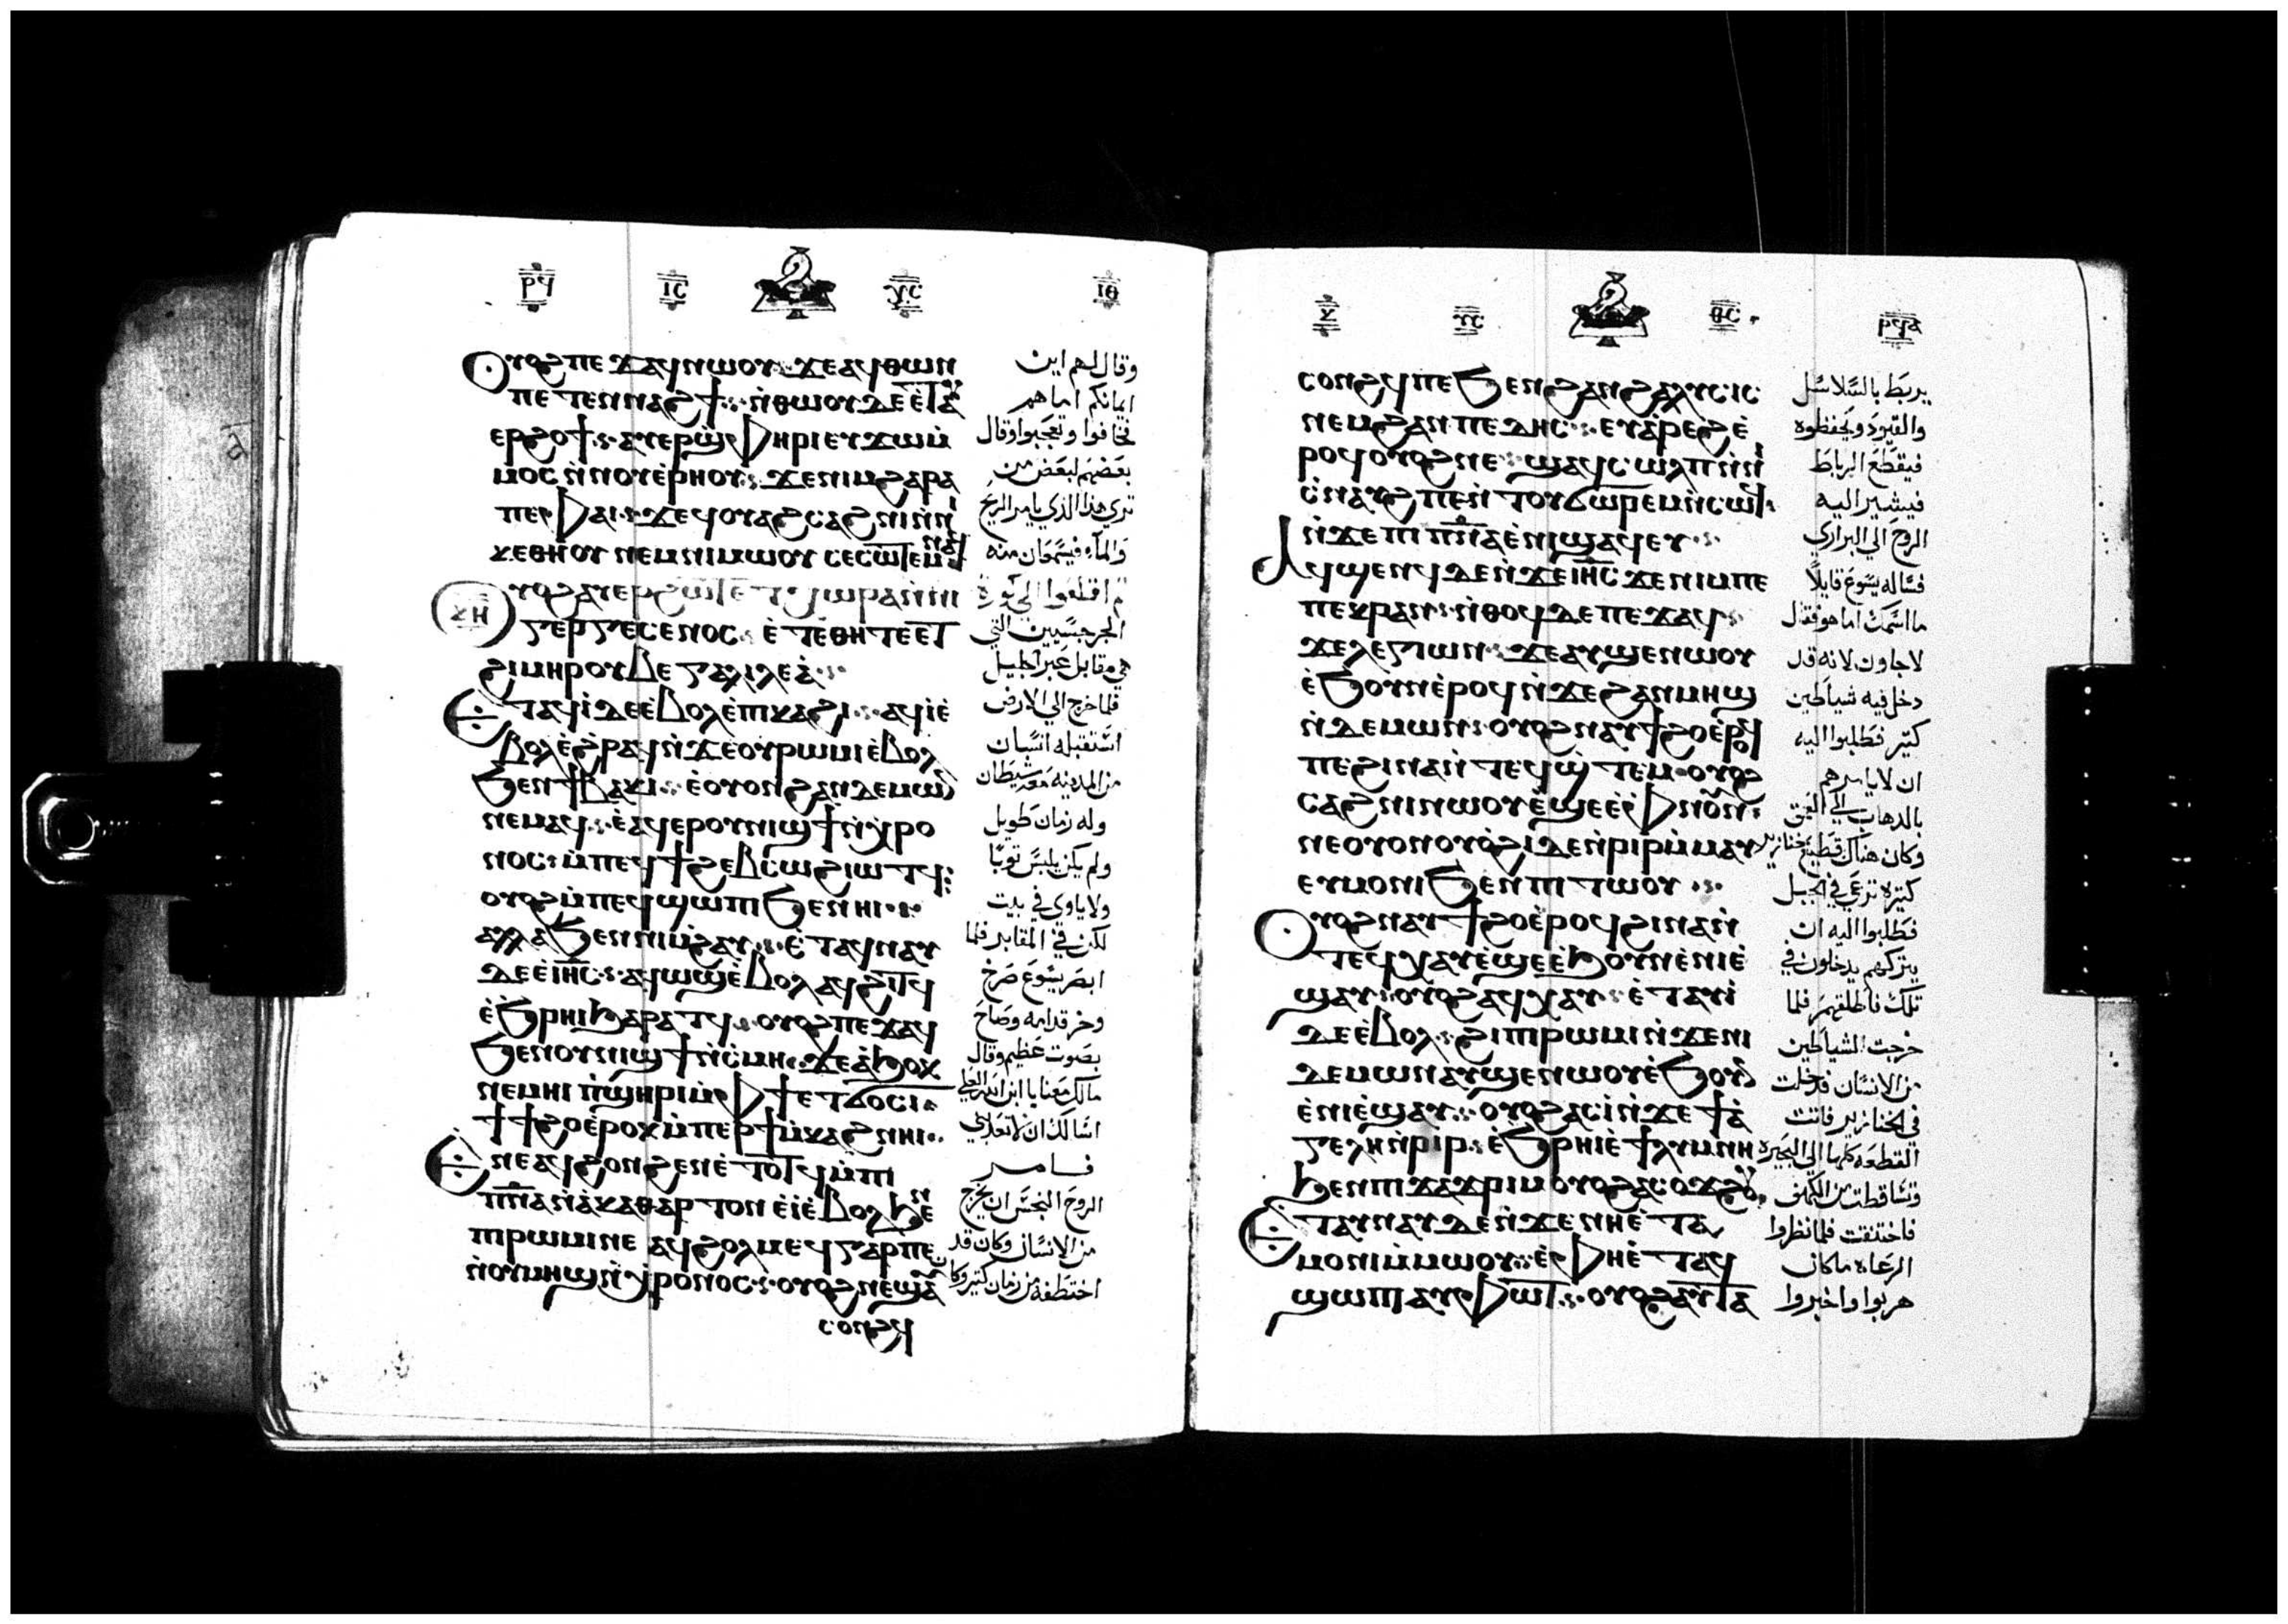 ⲣϥ ⲓⲥ ⲩⲥ ⲓⲑ
Ⲟⲩⲟϩ ⲡⲉϫⲁϥ ⲛⲱⲟⲩ ϫⲉ ⲁϥⲑⲱⲛ
ⲡⲉⲧⲉⲛⲛⲁϩϯ ⲛ̀ⲑⲱⲟⲩ ⲇⲉ ⲉ̀ⲧⲁⲩ
ⲉⲣϩⲟϯ ⲁⲩⲉⲣϣ̀ⲫⲏⲣⲓ ⲉⲩϫⲱⲙ̀
ⲙⲟⲥ ⲛ̀ⲛⲟⲩⲉ̀ⲣⲏⲟⲩ ϫⲉ ⲛⲓⲙ ϩⲁⲣⲁ
ⲡⲉ ⲫⲁⲓ ϫⲉ ϥⲟⲩⲁϩⲥⲁϩⲛⲓ ⲛ̀ⲛⲓ
ⲕⲉⲑⲏⲟⲩ ⲛⲉⲙ ⲛⲓⲙⲱⲟⲩ ⲥⲉⲥⲱⲧⲉⲙ ⲛⲁϥ
Ⲟⲩⲟϩ ⲁⲩⲉⲣϩⲱⲧ ⲉ ⲧ̀ⲭⲱⲣⲁ ⲛ̀ⲛⲓ
ⲕⲏ
ⲅⲉⲣⲅⲉⲥⲉⲛⲟⲥ ⲉ̀ⲧⲉ ⲑⲏ ⲧⲉ ⲉⲧ
ϩⲓⲙⲏⲣ ⲟⲩⲃⲉ ⲅⲁⲗⲓⲗⲉⲁ̀
Ⲉⲧⲁϥⲓ̀ ⲇⲉ ⲉ̀ⲃⲟⲗ ⲉ̀ⲡⲓⲕⲁϩⲓ ⲁϥⲓ̀ ⲉ̀
ⲃⲟⲗ ⲉ̀ϩⲣⲁϥ ⲛ̀ϫⲉ ⲟⲩⲣⲱⲙⲓ ⲉ̀ⲃⲟⲗ
ϧⲉⲛ ϯⲃⲁⲕⲓ ⲉ̀ⲟⲩⲟⲛ ϩⲁⲛⲇⲉⲙⲱⲛ
ⲛⲉⲙⲁϥ ⲉ̀ⲁϥⲉⲣ ⲟⲩⲛⲓϣϯ ⲛ̀ⲭ̀ⲣⲟ
ⲛⲟⲥ ⲙ̀ⲡⲉϥϯϩⲉⲃⲥⲱ ϩⲓⲱⲧϥ
ⲟⲩⲟϩ ⲙ̀ⲡⲉϥϣⲱⲡⲓ ϧⲉⲛ ⲏⲓ
ⲁⲗⲗⲁ ϧⲉⲛ ⲛⲓⲙ̀ϩⲁⲩ ⲉ̀ⲧⲁϥⲛⲁⲩ
ⲇⲉ ⲉ̀ⲓⲏⲥ ⲁϥⲱϣ ⲉ̀ⲃⲟⲗ ⲁϥϩⲓⲧϥ
ⲉ̀ϧⲣⲏⲓ ϧⲁⲣⲁⲧϥ ⲟⲩⲟϩ ⲡⲉϫⲁϥ
ϧⲉⲛ ⲟⲩⲛⲓϣϯ ⲛ̀ⲥ̀ⲙⲏ ϫⲉ ⲁ̀ϧⲟⲕ
ⲛⲉⲙⲏⲓ ⲡ̀ϣⲏⲣⲓ ⲙ̀ⲫϯ ⲉⲧϭⲟⲥⲓ
ϯϯϩⲟ ⲉ̀ⲣⲟⲕ ⲙ̀ⲡⲉⲣϯⲙ̀ⲕⲁϩ ⲛⲏⲓ
Ⲉⲛⲉ ⲁϥϩⲟⲛϩⲉⲛ ⲉ̀ⲧⲟⲧϥ ⲙ̀ⲡⲓ
ⲡⲛⲁ ⲛ̀ⲁ̀ⲕⲁⲑⲁⲣⲧⲟⲛ ⲉ̀ⲓ̀ ⲉ̀ⲃⲟⲗ ϧⲉⲛ
ⲡⲓⲣⲱⲙⲓ ⲛⲉ ⲁϥϩⲟⲗⲙⲉϥ ⲅⲁⲣ ⲡⲉ
ⲛ̀ⲟⲩⲙⲏϣ ⲛ̀ⲭ̀ⲣⲟⲛⲟⲥ ⲟⲩⲟϩ ⲛⲉϣⲁⲩ
ⲥⲟⲛϩϥ
وقال لهم اين
ايمانكم اما هم
فخافوا وتعجبوا وقال
بعضهم لبعض من
ترى هذا الذي يامر الريح
والماء فيسمعان منه
ثم اقلعوا الي كورة
الجرجسيين التي
هي مقابل عبر الجليل
فلما خرج الي الارض
استقبله انسان
من المدينه معه شيطان
وله زمان طويل
ولم يكن يلبس ثوبا
ولا ياوي في بيت
لكن في المقابر فلما
ابصر يسوع صرخ
وخر قدامه وصاح
بصوت عظيم وقال
مالك معنا يا ابن الله العلي
اسالك ان لا تعذبني
فامر
الروح النجس ان يخرج
من الانسان وكان قد
اختطفه من زمان كثير وكان
ⲕ ⲩⲥ ⲑⲥ ⲣϥⲁ
ⲥⲟⲛϩϥ ⲡⲉ ϧⲉⲛ ϩⲁⲛϩⲁⲗⲩⲥⲓⲥ
ⲛⲉⲙ ϩⲁⲛⲡⲉⲇⲏⲥ ⲉⲩⲁ̀ⲣⲉϩ ⲉ̀
ⲣⲟϥ ⲟⲩⲟϩ ⲛⲉ ϣⲁϥⲥⲱⲗⲡ ⲛ̀ⲛⲓ
ⲥ̀ⲛⲁⲩϩ ⲡⲉ ⲛ̀ⲧⲟⲩϭⲱⲣⲉⲙ ⲛ̀ⲥⲱϥ
ⲛ̀ϫⲉ ⲡⲓⲡⲛⲁ ⲉ̀ⲛⲓϣⲁϥⲉⲩ
Ⲁϥϣⲉⲛϥ ⲇⲉ ⲛ̀ϫⲉ ⲓⲏⲥ ϫⲉ ⲛⲓⲙ ⲡⲉ
ⲡⲉⲕⲣⲁⲛ ⲛ̀ⲑⲟϥ ⲇⲉ ⲡⲉϫⲁϥ
ϫⲉ ⲗⲉⲅⲓⲱⲛ ϫⲉ ⲁⲩϣⲉⲛⲱⲟⲩ
ⲉ̀ϧⲟⲩⲛ ⲉ̀ⲣⲟϥ ⲛ̀ϫⲉ ϩⲁⲛⲙⲏϣ
ⲛ̀ⲇⲉⲙⲱⲛ ⲟⲩⲟϩ ⲛⲁⲩϯϩⲟ ⲉ̀ⲣⲟϥ
ⲡⲉ ϩⲓⲛⲁ ⲛ̀ⲧⲉϥϣ̀ⲧⲉⲙ ⲟⲩⲁϩ
ⲥⲁϩⲛⲓ ⲛⲱⲟⲩ ⲉ̀ϣⲉ ⲉ̀ⲫ̀ⲛⲟⲩⲛ
ⲛⲉ ⲟⲩⲟⲛ ⲟⲩⲟ̀ϩⲓ ⲇⲉ ⲛ̀ⲣⲓⲣ ⲙ̀ⲙⲁⲩ
ⲉⲩⲙⲟⲛⲓ ϧⲉⲛ ⲡⲓⲧⲱⲟⲩ
Ⲟⲩⲟϩ ⲛⲁⲩϯϩⲟ ⲉ̀ⲣⲟϥ ϩⲓⲛⲁ ⲛ̀
ⲧⲉϥⲭⲁⲩ ⲉ̀ϣⲉ ⲉ̀ϧⲟⲩⲛ ⲉ̀ⲛⲓⲉ̀
ϣⲁⲩ ⲟⲩⲟϩ ⲁϥⲭⲁⲩ ⲉ̀ⲧⲁⲩⲓ̀
ⲇⲉ ⲉ̀ⲃⲟⲗ ϩⲓ ⲡⲓⲣⲱⲙⲓ ⲛ̀ϫⲉ ⲛⲓ
ⲇⲉⲙⲱⲛ ⲁⲩϣⲉⲛⲱⲟⲩ ⲉ̀ϧⲟⲩⲛ
ⲉ̀ⲛⲓⲉ̀ϣⲁⲩ ⲟⲩⲟϩ ⲁⲥⲓ̀ ⲛ̀ϫⲉ ϯⲁ̀
ⲅⲉⲗⲏ ⲛ̀ⲣⲓⲣ ⲉ̀ϧⲣⲏⲓ ⲉ̀ϯⲗⲩⲙⲛⲏ
ϧⲉⲛ ⲡⲓϫⲁϫⲣⲓⲙ ⲟⲩⲟϩ ⲁⲥⲟϫϩⲟⲩ
Ⲉⲧⲁⲩⲛⲁⲩ ⲇⲉ ⲛ̀ϫⲉ ⲛⲏ ⲉ̀ⲧⲁ
ⲙⲟⲛⲓ ⲙ̀ⲙⲱⲟⲩ ⲉ̀ⲫⲏ ⲉ̀ⲧⲁϥ
ϣⲱⲡⲓ ⲁⲩⲫⲱⲧ ⲟⲩⲟϩ ⲁⲩⲧⲁ
يربط بالسلاسل
والقيود ويحفظوه
فيقطع الرباط
فيشير اليه
الروح الي البراري
فساله يسوع قايلا
ما اسمك اما هو فقال
لاجاون لانه قد
دخل فيه شياطين
كثير فطلبوا اليه
ان لا يامرهم
بالذهاب الي العمق
وكان هناك قطيع خنازير
كثيره ترعي في الجبل
فطلبوا اليه ان
يتركهم يدخلون في
تلك فاطلقهم فلما
خرجت الشياطين
من الانسان فدخلت
في الخنازير فاتت
القطعه كلها الي البحيره
وتساقطت من الكهف
فاختنقت فلما نظروا
الرعاه ما كان
هربوا واخبروا